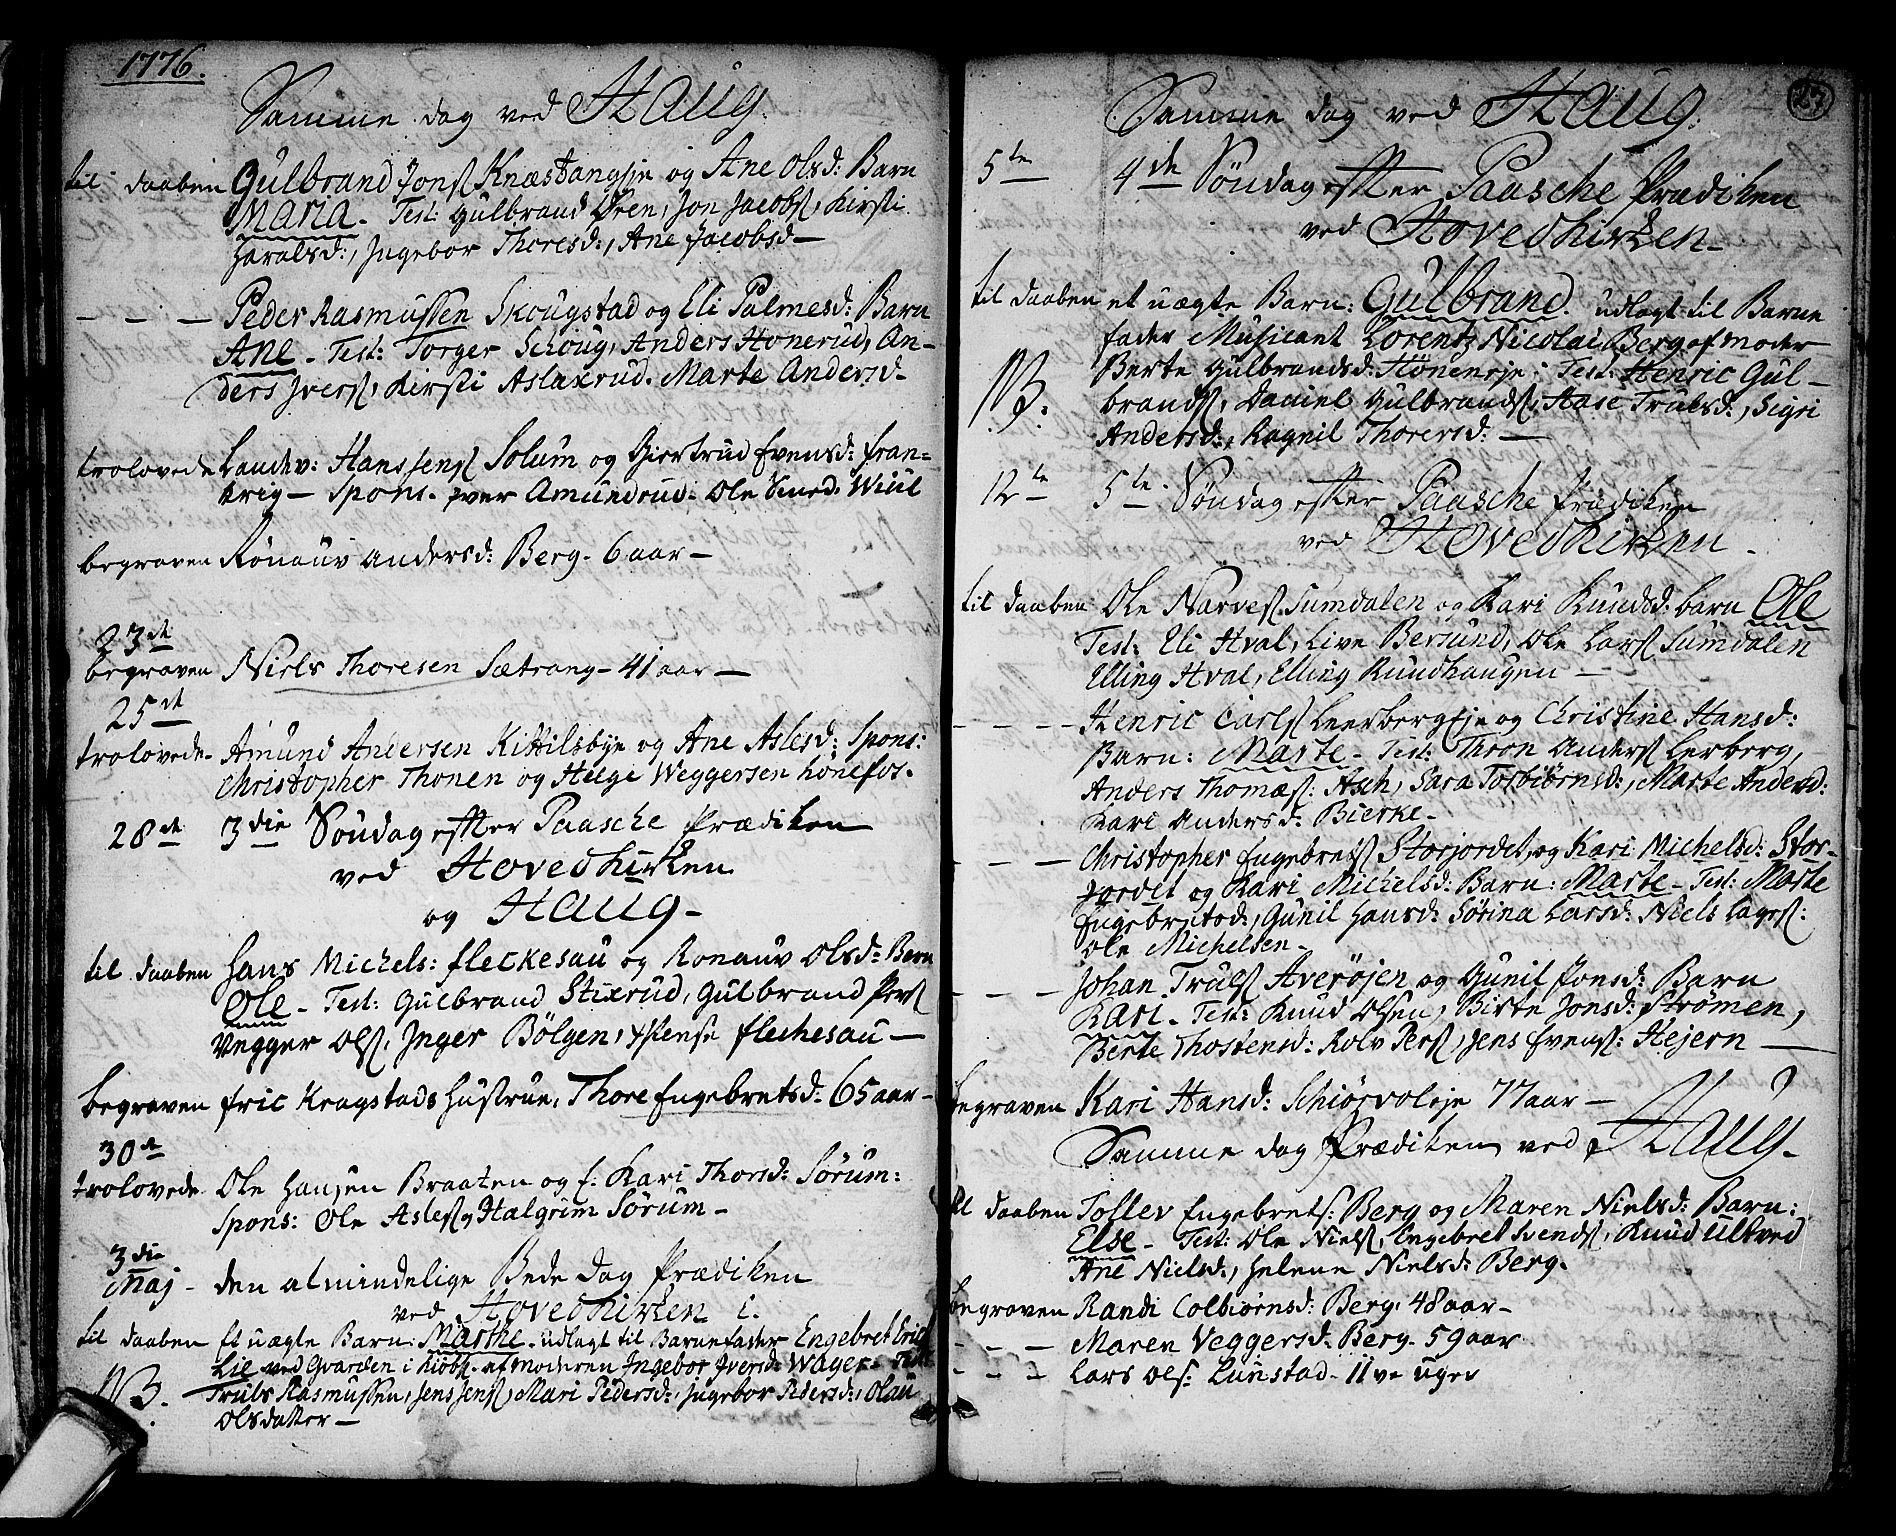 1776.
Samme dag ved Haug.
til daaben Gulbrand Jonsß Knæstangeje og Ane Olsd: Barn
Maria - Test: Gulbrand Øren, Jon Jacobsß, Kirsti
Haralsd:, Ingebor Thoresd:, Ane Jacobsd -
- - - Peder Rasmussen Skougstad og Eli Palmesd: Barn
Ane - Test: Torger Schoug, Anders Honerud, An-
ders Iversß, Kirsti Aslaxrud. Marte Andersd-
trolovede Landev: Hans Jensß Solum og Giertrud Evensd: fran-
krig - Spons. Iver Amundrud. Ole Smed. Wiul
begraven Rönauv Andersd: Berg. 6 aar -
23de
begraven Niels Thoresen Sætrang - 41 aar -
25de
trolovede. Amund Andersen Kittilsbye og Ane Aslesd: Spons:
Christopher Thonen og Helge Weggersen Hönefos.
28de 3die Söndag efter Paasche Prædiken
ved Hovedkirken
og Haug -
til daaben Hans Michels: fleckesau og Ronauv Olsd: Barn
Ole - Test: Gulbrand Stixrud, Gulbrand Persß
Vegger Olsß, Inger Bölgen, flechesau -
begraven fric Kragstads Hustrue, Thore Engebretsd: 65 aar -
30de
trolovede. Ole Hansen Braaten og f: Kari Thorsd: Sörum:
Spons: Ole Aslesß og Halgrim Sörum -
3die
Maj - den almindelige Bede Dag Prædiken
ved Hovedkirken
til daaben Et uægte Barn: Marthe. udlagt til Barnefader Engebret
Lie ved Gvarden i Kiöbh. af moderen Ingebor Iversd: Wager - Test
NB. Truls Rasmussen, Jens Jensß, Mari Pedersd:, Ingebor Pedersd:, Olau
Olsdatter -
23
Samme dag ved Haug.
5te 4de Söndag efter Paasche Prædiken
ved Hovedkirken -
til daaben et uægte Barn: Gulbrand. udlagt til Barne
fader Musicant Lorentz Nicolai Berg af moder
NB. Berte Gulbrandsd: Höneneje: Test: Henric Gul-
brandsß, Daniel Gulbrandsß, Aase Trulsd:, Sigri
Andersd:, Ragnil Thorersd: -
12te 5te Söndag efter Paasche Prædiken
ved Hovedkirken -
til daaben Ole Narvesß Sumdalen og Kari Knudsd: barn Ole
Test: Eli Hval, Live Bersund, Ole Larsß Sumdalen
Elling Hval, Elling Rundhaugen -
- - - Henric Carlsß Leerbergeje og Christine Hansd:
Barn: Marte - Test: Thron Andersß Lerberg,
Anders Thomæsß: Asch, Sara Torbiörnsd:, Marte Andersd:
Kari Andersd: Bierke -
- - - Christopher Engebretsß Storjordet, og Kari Michelsd: Stor-
jordet og Kari Michelsd: Barn: Marte - Test: Marte
Engebretsd:, Gunil Hansd: Sörina Larsd: Niels Lagesß:
Ole Michelsen -
- - - Johan Trulsß Averöjen og Gunil Jonsd: Barn
Kari - Test: Knud Olsen, Birte Jonsd: Strömen,
Berte Thostensd: Rolv Persß, Jens Evensß: Hejern -
begraven Kari Hansd: Schiörvoleje 77 aar -
Samme dag Prædiken ved Haug -
til daaben Tollev Engebretsß: Berg og Maren Nielsd: Barn:
Else - Test: Ole Nielsß, Engebret Svendsß, Knud Ultved
Ane Nielsd:, Helene Nielsd: Berg.
begraven Randi Colbiörnsd: Berg. 48 aar -
- - - Maren Veggersd: Berg. 59 aar
- - - Lars Olsß: Lunstad - 11ve uger